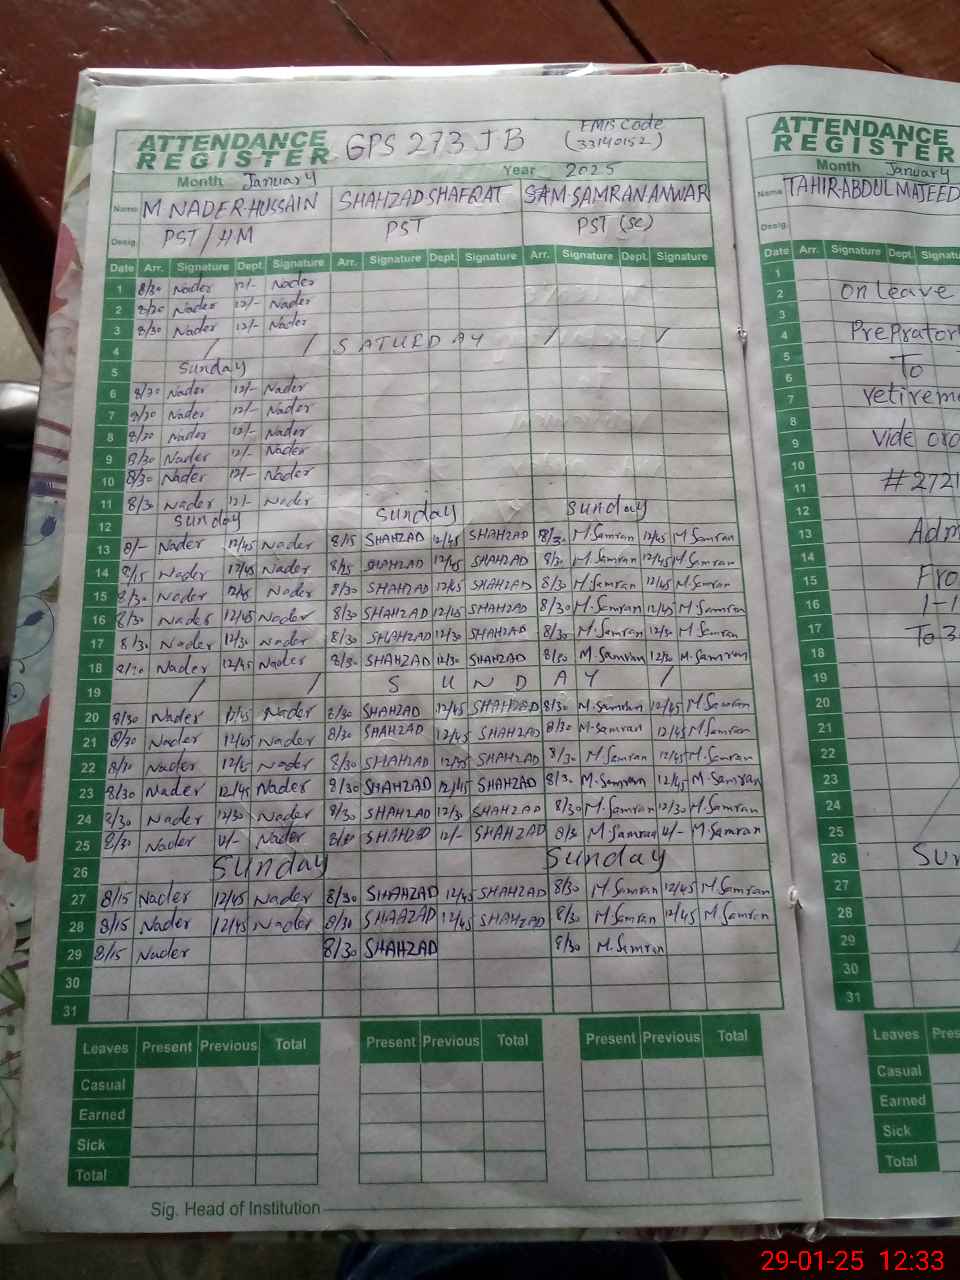 ATTENDANCE REGISTER GPS 273 JB EMIS Code (33140152)
Month January Year 2025
Name M NADER HUSSAIN SHAHZAD SHAFRAT SAM-SAMRAN ANWAR
Desig. PST/HM PST PST (SC)
Date Arr. Signature Dept. Signature Arr. Signature Dept. Signature Arr. Signature Dept. Signature
1 8/30 Nader 12/- Nader
2 8/30 Nader 12/- Nader
3 8/30 Nader 12/- Nader
4 / / SATURDAY / /
5 Sunday
6 8/30 Nader 12/- Nader
7 8/30 Nader 12/- Nader
8 8/30 Nader 12/- Nader
9 8/30 Nader 12/- Nader
10 8/30 Nader 12/- Nader
11 8/30 Nader 12/- Nader
12 Sunday Sunday Sunday
13 8/- Nader 12/45 Nader 8/15 SHAHZAD 12/45 SHAHZAD 8/30 M.Samran 12/45 M.Samran
14 8/15 Nader 12/45 Nader SHAHZAD 12/45 SHAHZAD 8/30 M.Samran 12/45 M.Samran
15 8/30 Nader 12/45 Nader 8/30 SHAHZAD 12/45 SHAHZAD 8/30 M.Samran 12/45 M.Samran
16 8/30 Nader 12/45 Nader 8/30 SHAHZAD 12/45 SHAHZAD 8/30 M.Samran 12/45 M.Samran
17 8/30 Nader 12/30 Nader 8/30 SHAHZAD 12/30 SHAHZAD 8/30 M.Samran 12/30 M.Samran
18 Nader 12/45 Nader 8/30 SHAHZAD 12/30 SHAHZAD 8/30 M.Samran 12/30 M.Samran
19 / / SUNDAY /
20 8/30 Nader 12/45 Nader 8/30 SHAHZAD 12/45 SHAHZAD 8/30 M.Samran 12/45 M.Samran
21 8/30 Nader 12/45 Nader 8/30 SHAHZAD 12/45 SHAHZAD 8/30 M.Samran 12/45 M.Samran
22 8/30 Nader 12/45 Nader 8/30 SHAHZAD SHAHZAD 8/30 M.Samran 12/45 M.Samran
23 8/30 Nader 12/45 Nader 8/30 SHAHZAD 12/45 SHAHZAD 8/30 M.Samran 12/45 M.Samran
24 8/30 Nader 12/30 Nader 8/30 SHAHZAD 12/30 SHAHZAD 8/30 M.Samran 12/30 M.Samran
25 8/30 Nader Nader SHAHZAD 12/- SHAHZAD 8/30 M.Samran M.Samran
26 Sunday Sunday
27 8/15 Nader 12/45 Nader 8/30 SHAHZAD 12/45 SHAHZAD 8/30 M.Samran 12/45 M.Samran
28 8/15 Nader 12/45 Nader 8/30 SHAHZAD 12/45 SHAHZAD 8/30 M.Samran 12/45 M.Samran
29 8/15 Nader 8/30 SHAHZAD 8/30 M.Samran
30
31
Leaves Present Previous Total Present Previous Total Present Previous Total
Casual
Earned
Sick
Total
Sig. Head of Institution
ATTENDANCE REGISTER
Month January
Name TAHIR ABDUL MAJEED
Desig.
Date Arr. Signature Dept.
1
2 on Leave
3
4 Prepratory
5
6 To
7
8
9 vide
10
11 # 2721
12
13
14
15
16 1-1
17 To
18
19
20
21
22
23
24
25
26
27
28
29
30
31
Leaves
Casual
Earned
Sick
Total
29-01-25 12:33